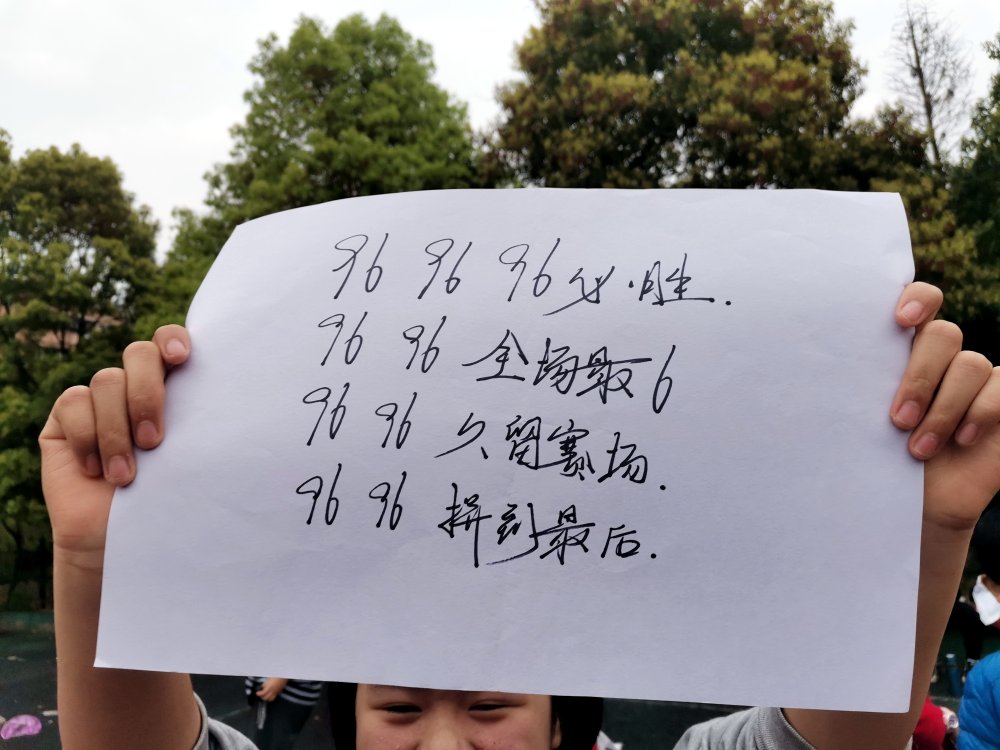 96 96 96 必胜.
96 96 全场最6
96 96 久留赛场.
96 96 拼到最后.